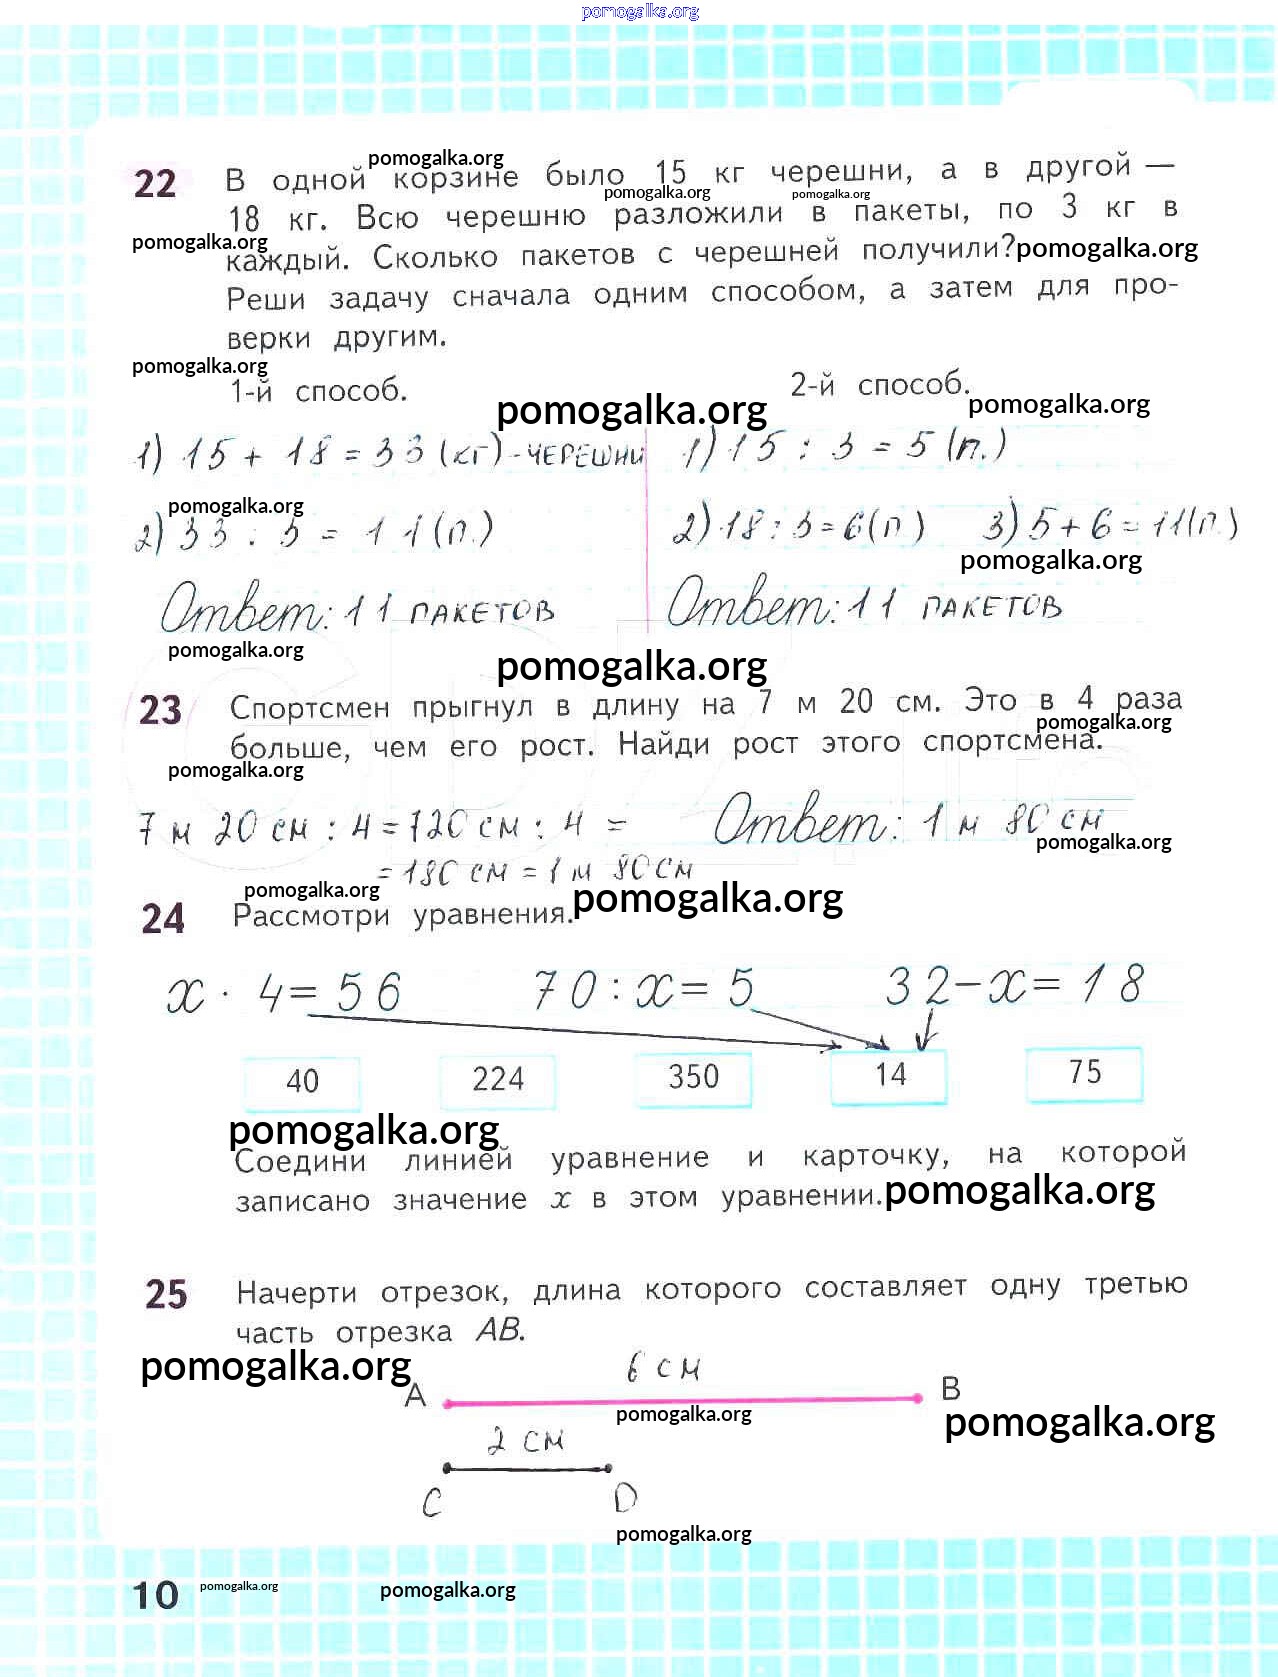 pomogalka.org
pomogalka.org
22 В одной корзине было 15 кг черешни, а в другой —
pomogalka.org pomogalka.org
18 кг. Всю черешню разложили в пакеты, по 3 кг в
pomogalka.org
каждый. Сколько пакетов с черешней получили? pomogalka.org
Реши задачу сначала одним способом, а затем для про-
верки другим.
pomogalka.org
1-й способ. 2-й способ.
pomogalka.org pomogalka.org
1) 15 + 18 = 33 (кг) - ЧЕРЕШНИ 1) 15 : 3 = 5 (п.)
pomogalka.org
2) 33 : 3 = 11 (п.) 2) 18 : 3 = 6 (п.) 3) 5 + 6 = 11 (п.)
pomogalka.org
Ответ: 11 ПАКЕТОВ Ответ: 11 ПАКЕТОВ
pomogalka.org pomogalka.org
23 Спортсмен прыгнул в длину на 7 м 20 см. Это в 4 раза
pomogalka.org
больше, чем его рост. Найди рост этого спортсмена.
pomogalka.org
7 м 20 см : 4 = 720 см : 4 = Ответ: 1 м 80 см
pomogalka.org
= 180 см = 1 м 80 см
pomogalka.org pomogalka.org
24 Рассмотри уравнения.
x · 4 = 56 70 : x = 5 32 − x = 18
40 224 350 14 75
pomogalka.org
Соедини линией уравнение и карточку, на которой
записано значение x в этом уравнении. pomogalka.org
25 Начерти отрезок, длина которого составляет одну третью
часть отрезка AB.
pomogalka.org
6 см
A B
pomogalka.org pomogalka.org
2 см
C D
pomogalka.org
10 pomogalka.org pomogalka.org